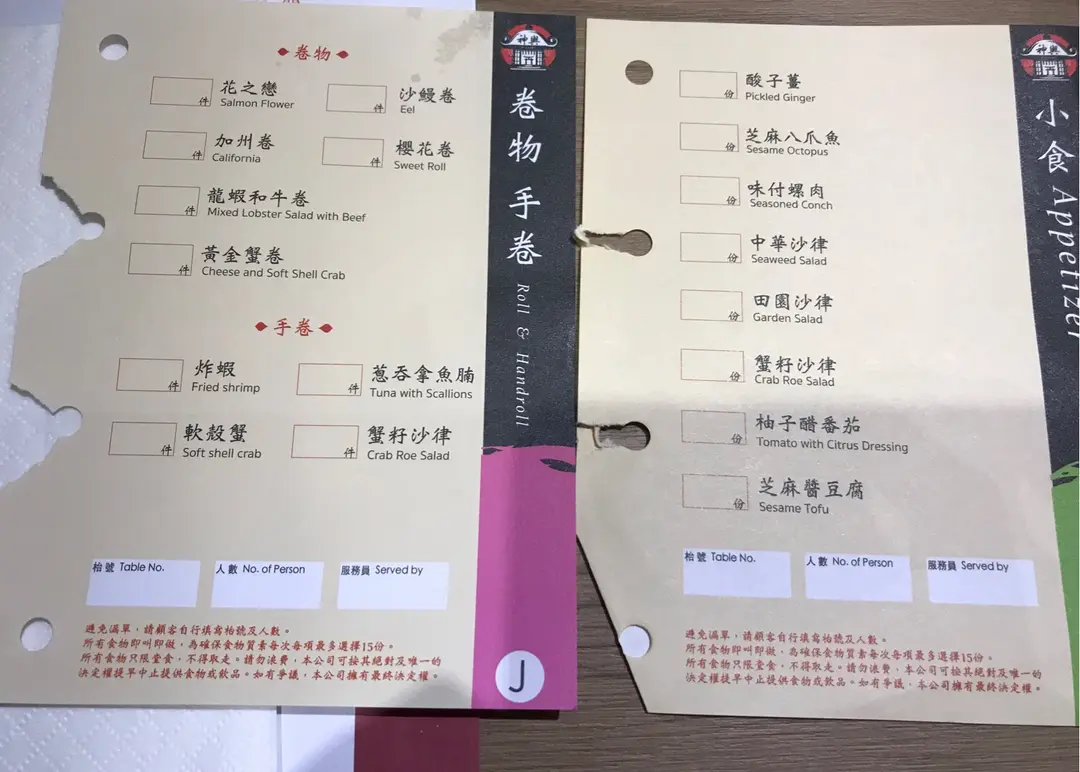 卷物
花之戀
Salmon Flower
件
沙鰻卷
Eel
件
加州卷
California
件
櫻花卷
Sweet Roll
件
龍蝦和牛卷
Mixed Lobster Salad with Beef
件
黃金蟹卷
Cheese and Soft Shell Crab
件
手卷
炸蝦
Fried shrimp
件
蔥吞拿魚腩
Tuna with Scallions
件
軟殼蟹
Soft shell crab
件
蟹籽沙律
Crab Roe Salad
件
枱號 Table No.
人數 No. of Person
服務員 Served by
避免漏單，請顧客自行填寫枱號及人數。
所有食物即叫即做，為確保食物質素每次每項最多選擇15份。
所有食物只限堂食，不得取走。請勿浪費，本公司可按其絕對及唯一的
決定權提早中止提供食物或飲品。如有爭議，本公司擁有最終決定權。
神輿
卷物 手卷 Roll & Handroll
J
酸子薑
Pickled Ginger
份
芝麻八爪魚
Sesame Octopus
份
味付螺肉
Seasoned Conch
份
中華沙律
Seaweed Salad
份
田園沙律
Garden Salad
份
蟹籽沙律
Crab Roe Salad
份
柚子醋番茄
Tomato with Citrus Dressing
份
芝麻醬豆腐
Sesame Tofu
份
枱號 Table No.
人數 No. of Person
服務員 Served by
避免漏單，請顧客自行填寫枱號及人數。
所有食物即叫即做，為確保食物質素每次每項最多選擇15份。
所有食物只限堂食，不得取走。請勿浪費，本公司可按其絕對及唯一的
決定權提早中止提供食物或飲品。如有爭議，本公司擁有最終決定權。
神輿
小食 Appetizer